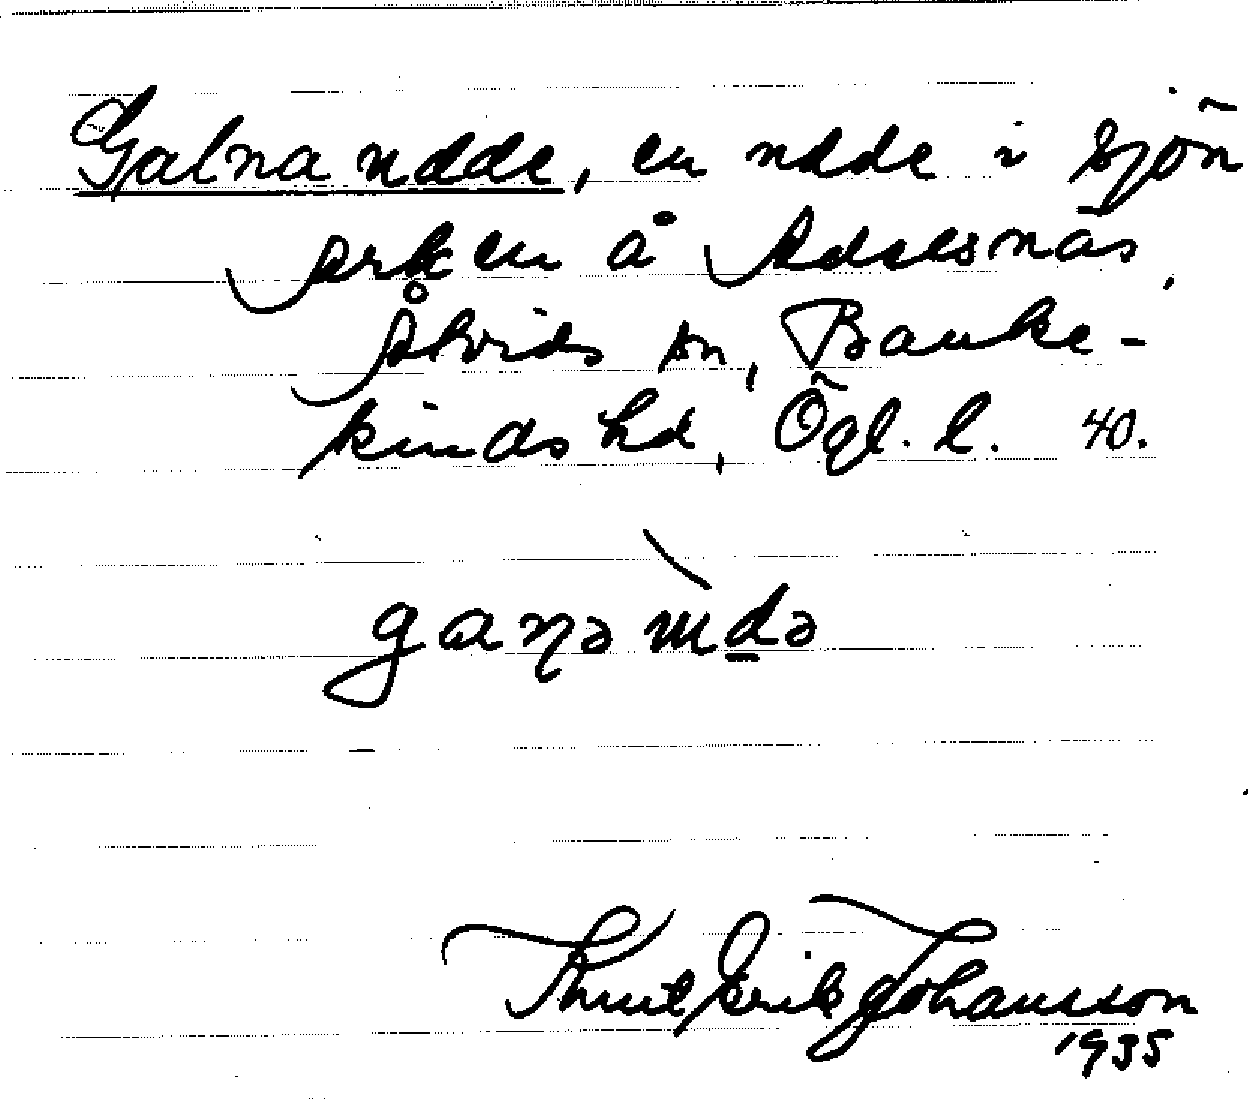 Galna udde, en udde i sjön
Ärken å Adelsnäs,
Åtvids sn, Banke-
kinds hd, Ögl. l. 40.
Knut Erik Johansson
1935